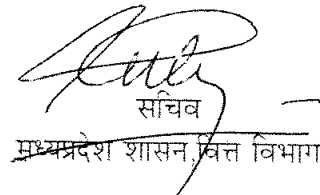 सचिव
मध्यप्रदेश शासन, वित्त विभाग